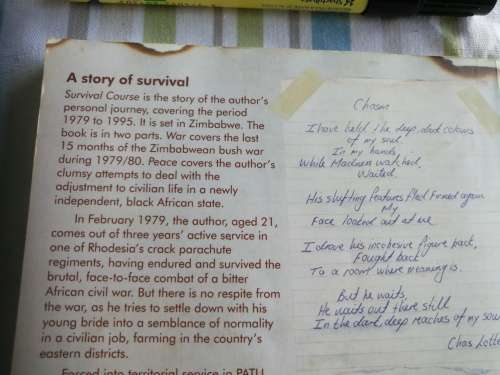 A story of survival
Survival Course is the story of the author's
personal journey, covering the period
1979 to 1995. It is set in Zimbabwe. The
book is in two parts. War covers the last
15 months of the Zimbabwean bush war
during 1979/80. Peace covers the author's
clumsy attempts to deal with the
adjustment to civilian life in a newly
independent, black African state.
In February 1979, the author, aged 21,
comes out of three years' active service in
one of Rhodesia's crack parachute
regiments, having endured and survived the
brutal, face-to-face combat of a bitter
African civil war. But there is no respite from
the war, as he tries to settle down with his
young bride into a semblance of normality
in a civilian job, farming in the country's
eastern districts.
Forced into territorial service in PATU
Chasm
I have held the deep, dark colours
of my soul.
In my hands,
While Madness watched,
Waited.
His shifting features fled formed again
My
Face looked out at me.
I drove his incohesive figure back,
Fought back
To a room where meaning is.
But he waits,
He waits out there still
In the dark, deep reaches of my soul
Chas Lotter